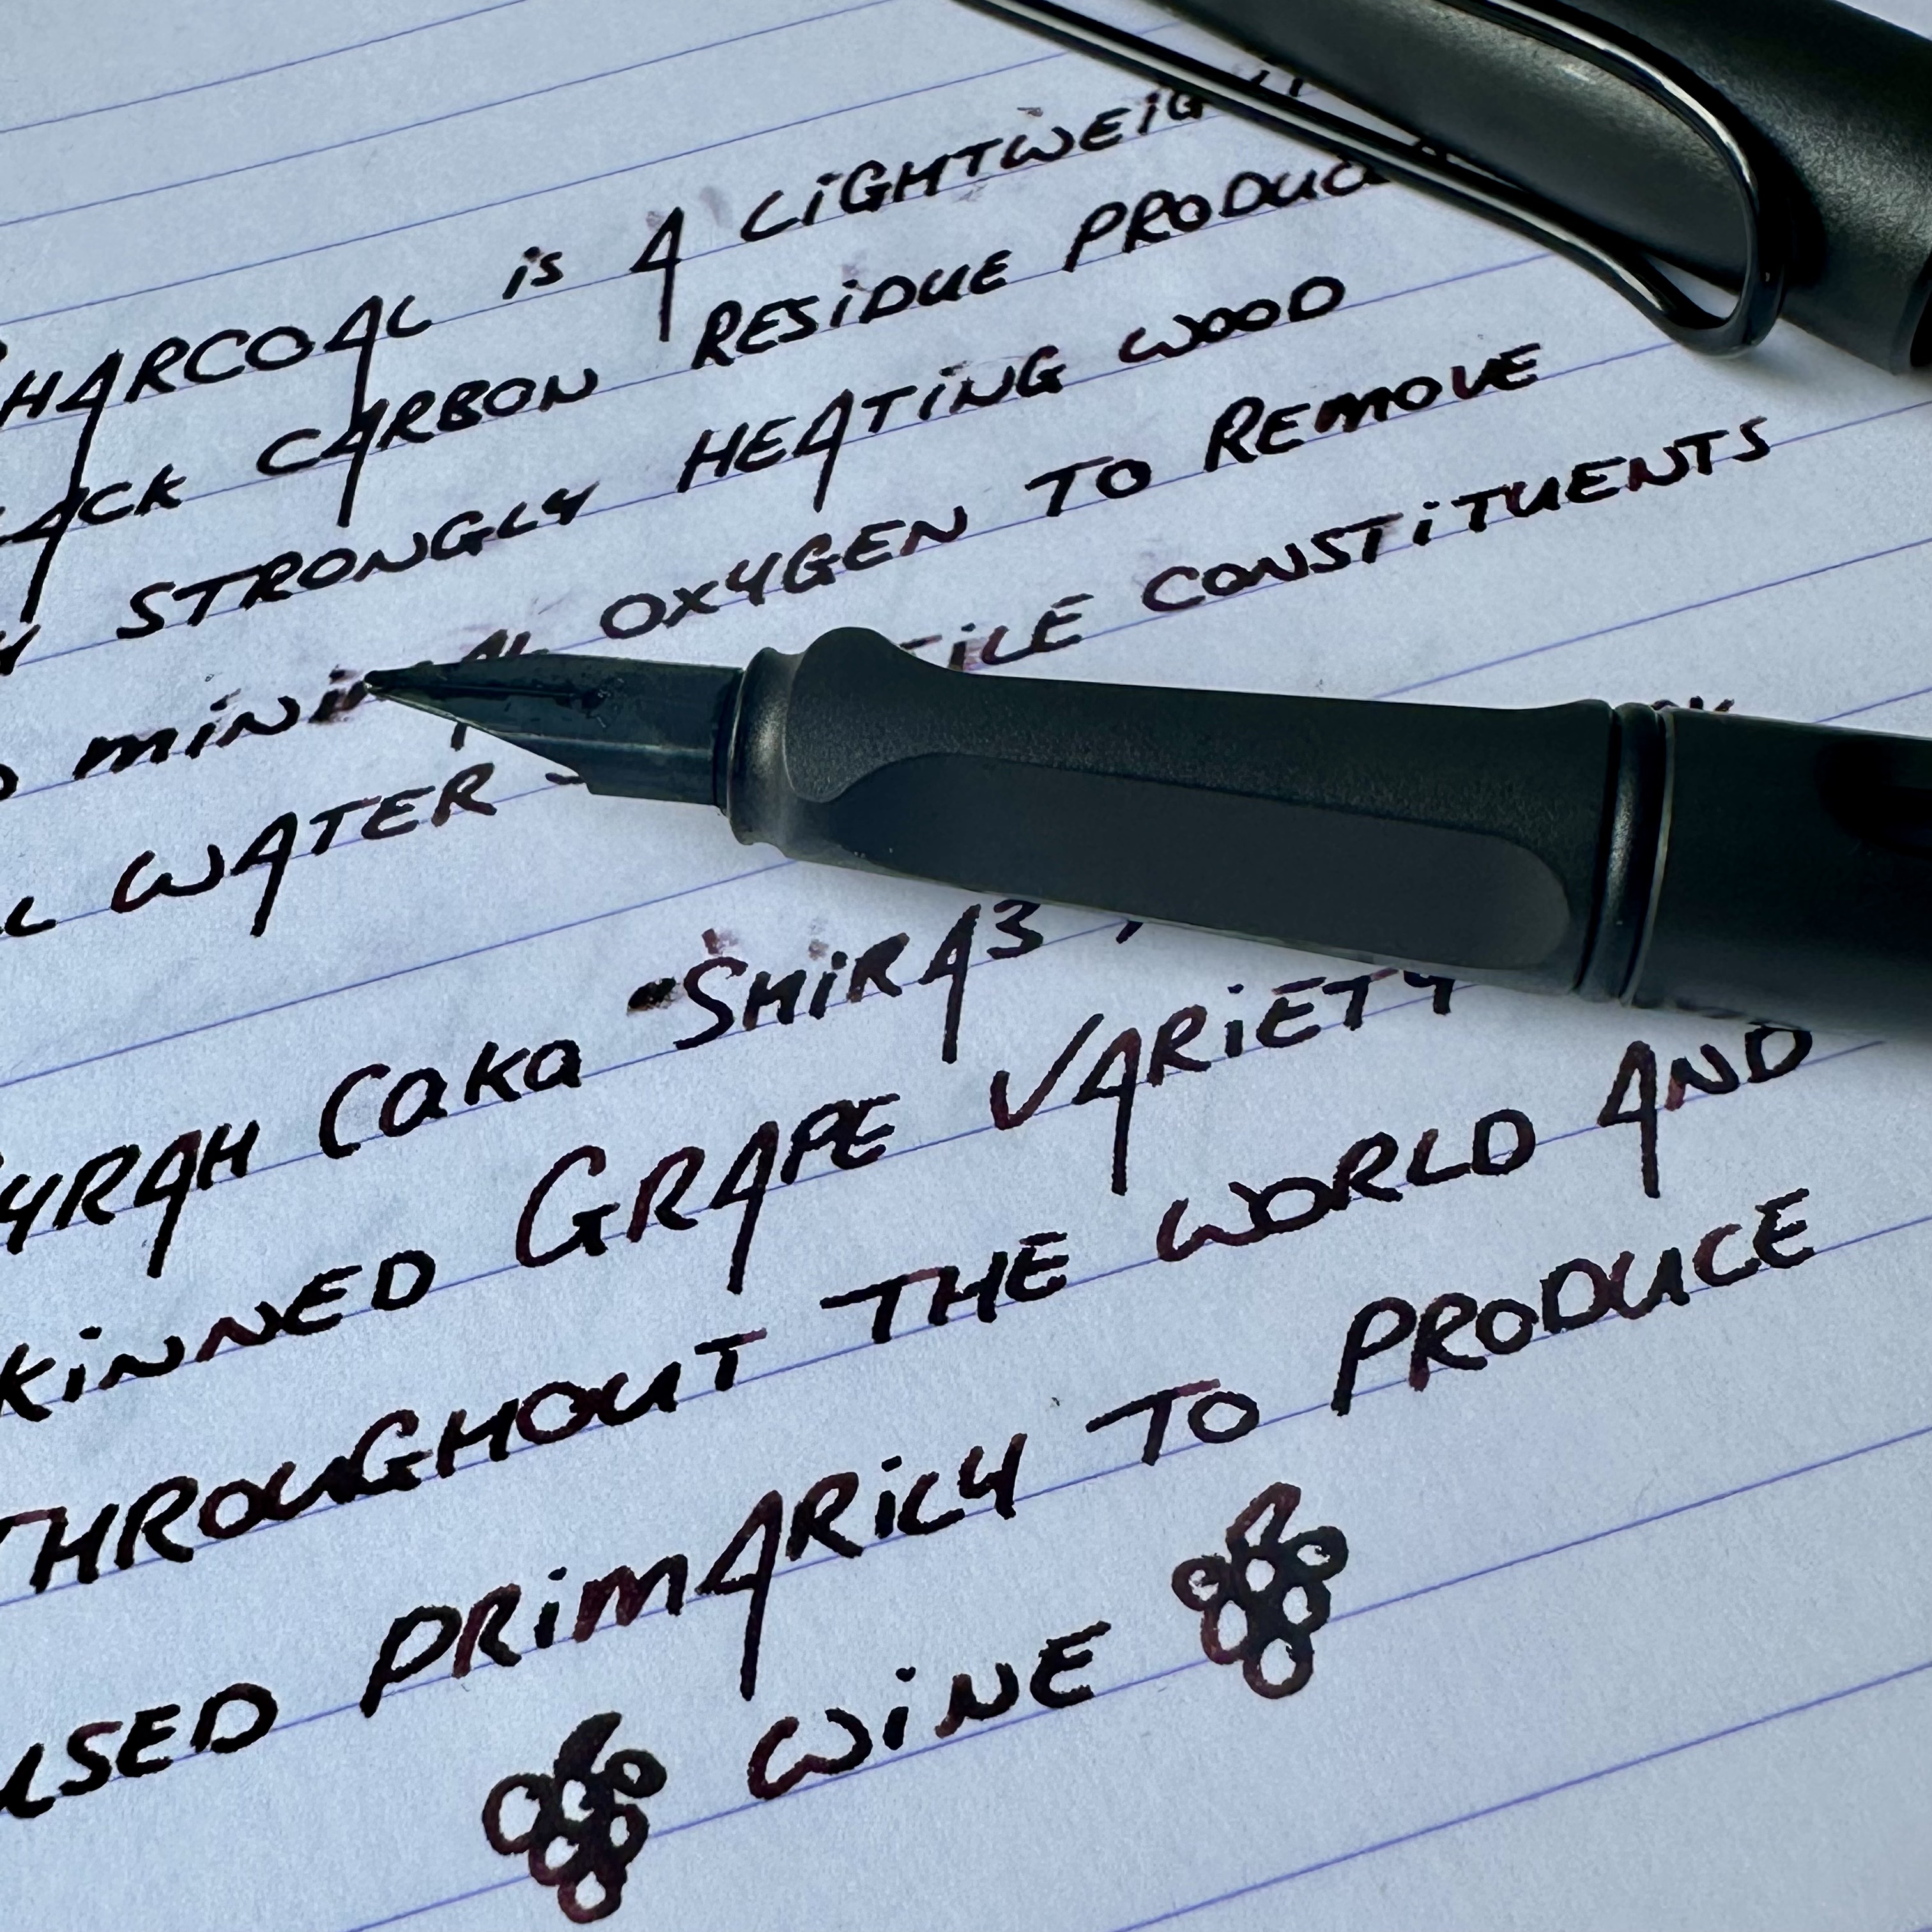 HARCOAL is A LiGHTWEiGHT
ACK CARBON RESiDUE PRODUC
STRONGLY HEATiNG WOOD
miniMAL OXYGEN TO REMOVE
WATER CONSTiTUENTS
YRAH (aka SHiRAZ,
KiNNED GRAPE VARiETY
THROUGHOUT THE WORLD AND
USED PRiMARiLY TO PRODUCE
WiNE